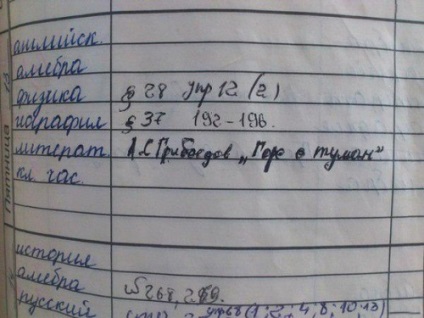 Пятница 13
английск.
алгебра
физика § 28 упр 12 (2)
география § 37 192-196.
литерат. А.С Грибоедов „Горе о туман"
кл час.
история
алгебра № 268, 269.
русский упр 68 (1; 2; 4; 8; 10; 13)